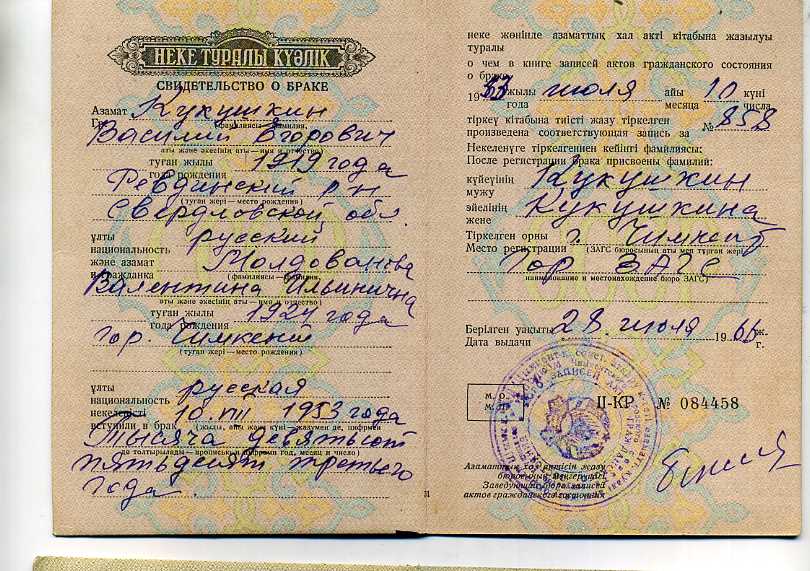 НЕКЕ ТУРАЛЫ КУӘЛІК
СВИДЕТЕЛЬСТВО О БРАКЕ
Азамат Кукушкин
(фамилиясы—фамилия,
Василий Егорович
аты және әкесінің аты—имя и отчество)
туған жылы 1919 года
года рождения
Ревдинский р-н
(туған жері—место рождения)
Свердловской обл.
ұлты русский
национальность
және азамат Молдованова
и гражданка (фамилиясы—фамилия,
Валентина Ильинична
аты және әкесінің аты—имя и отчество)
туған жылы 1924 года
года рождения
гор. Чимкент
(туған жері—место рождения)
ұлты русская
национальность
некелесті 10. VII 1953 года
вступили в брак (жылы, айы және күні—жазумен де, цифрмен
Тысяча девятьсот
де толтырылады—прописью и цифрами год, месяц и число)
пятьдесят третьего
года.
неке жөнінде азаматтық хал акті кітабына жазылуы
туралы
о чем в книге записей актов гражданского состояния
о браке
1953 жылы июля айы 10 күні
года месяца числа
тіркеу кітабына тиісті жазу тіркелген
произведена соответствующая запись за № 858
Некеленуге тіркелгеннен кейінгі фамилиясы:
После регистрации брака присвоены фамилии:
күйеуінің Кукушкин
мужу
әйелінің Кукушкина
жене
Тіркелген орны г. Чимкент
Место регистрации (ЗАГС бюросының аты мен тұрған жері
Гор ЗАГС
наименование и местонахождение бюро ЗАГС)
Берілген уақыты 28. июля 1966 ж.
Дата выдачи г.
М. О.
М. П.
II-КР № 084458
Азаматтық хал актісін жазу
бюросының меңгерушісі
Заведующий бюро записей
актов гражданского состояния